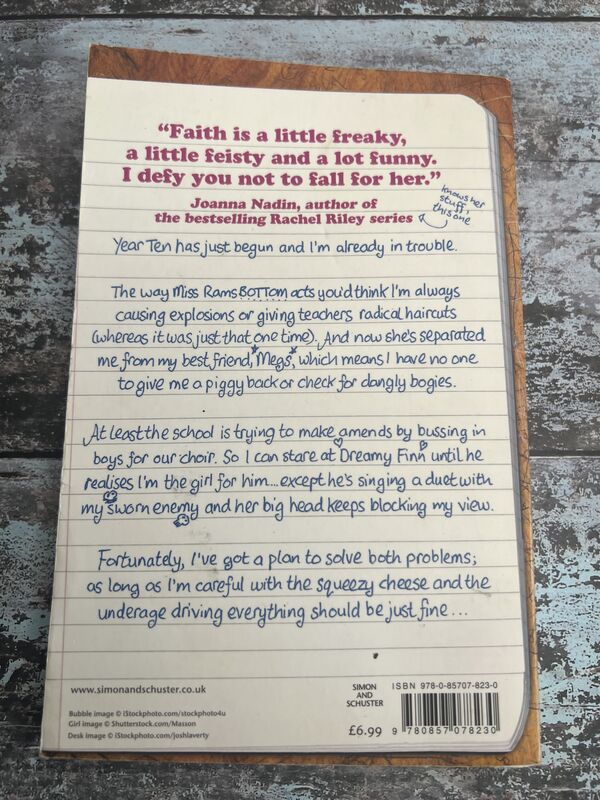 “Faith is a little freaky,
a little feisty and a lot funny.
I defy you not to fall for her.”
Joanna Nadin, author of
the bestselling Rachel Riley series
knows her
stuff,
this one
Year Ten has just begun and I'm already in trouble.
The way Miss RamsBOTTOM acts you'd think I'm always
causing explosions or giving teachers radical haircuts
(whereas it was just that one time). And now she's separated
me from my best friend, Megs, which means I have no one
to give me a piggyback or check for dangly bogies.
At least the school is trying to make amends by bussing in
boys for our choir. So I can stare at Dreamy Finn until he
realises I'm the girl for him...except he's singing a duet with
my sworn enemy and her big head keeps blocking my view.
Fortunately, I've got a plan to solve both problems;
as long as I'm careful with the squeezy cheese and the
underage driving everything should be just fine...
www.simonandschuster.co.uk
Bubble image © iStockphoto.com/stockphoto4u
Girl image © Shutterstock.com/Masson
Desk image © iStockphoto.com/joshlaverty
SIMON
AND
SCHUSTER
£6.99
ISBN 978-0-85707-823-0
9 780857 078230